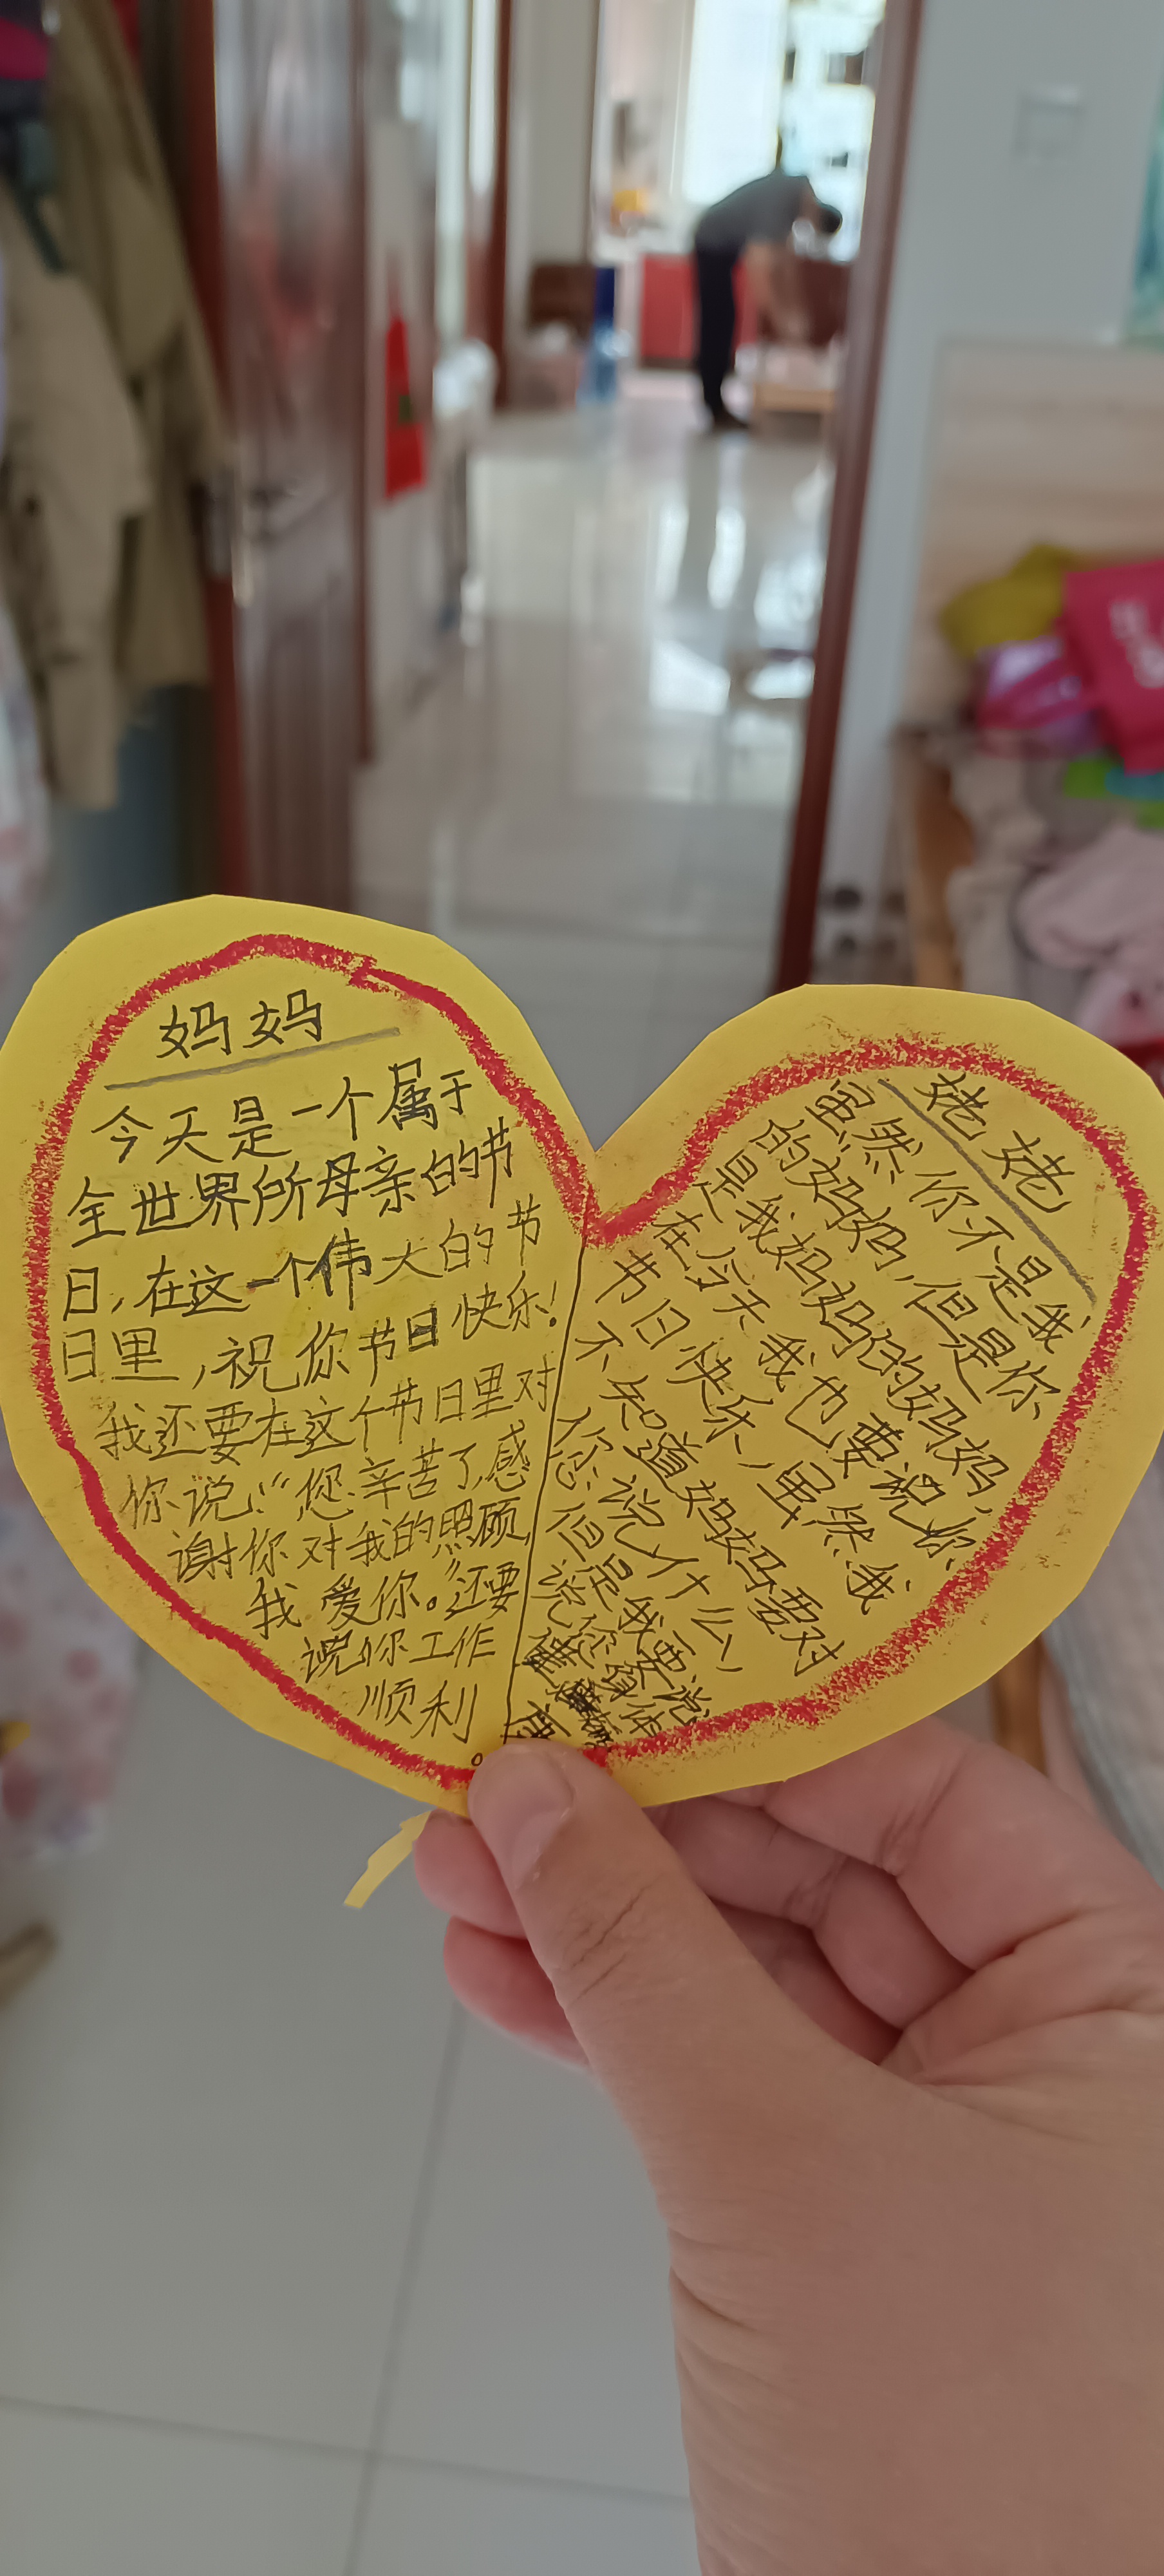 妈妈
今天是一个属于
全世界所母亲的节
日,在这一个伟大的节
日里,祝你节日快乐!
我还要在这个节日里对
你说:“您辛苦了感
谢你对我的照顾,
我爱你。”还要
说你工作
顺利
。
姥姥
虽然你不是我
的妈妈,但是你
是我妈妈的妈妈,
在今天我也要祝你
节日快乐,虽然我
不知道妈妈要对
你说什么,
但是我要说
说你身体
健